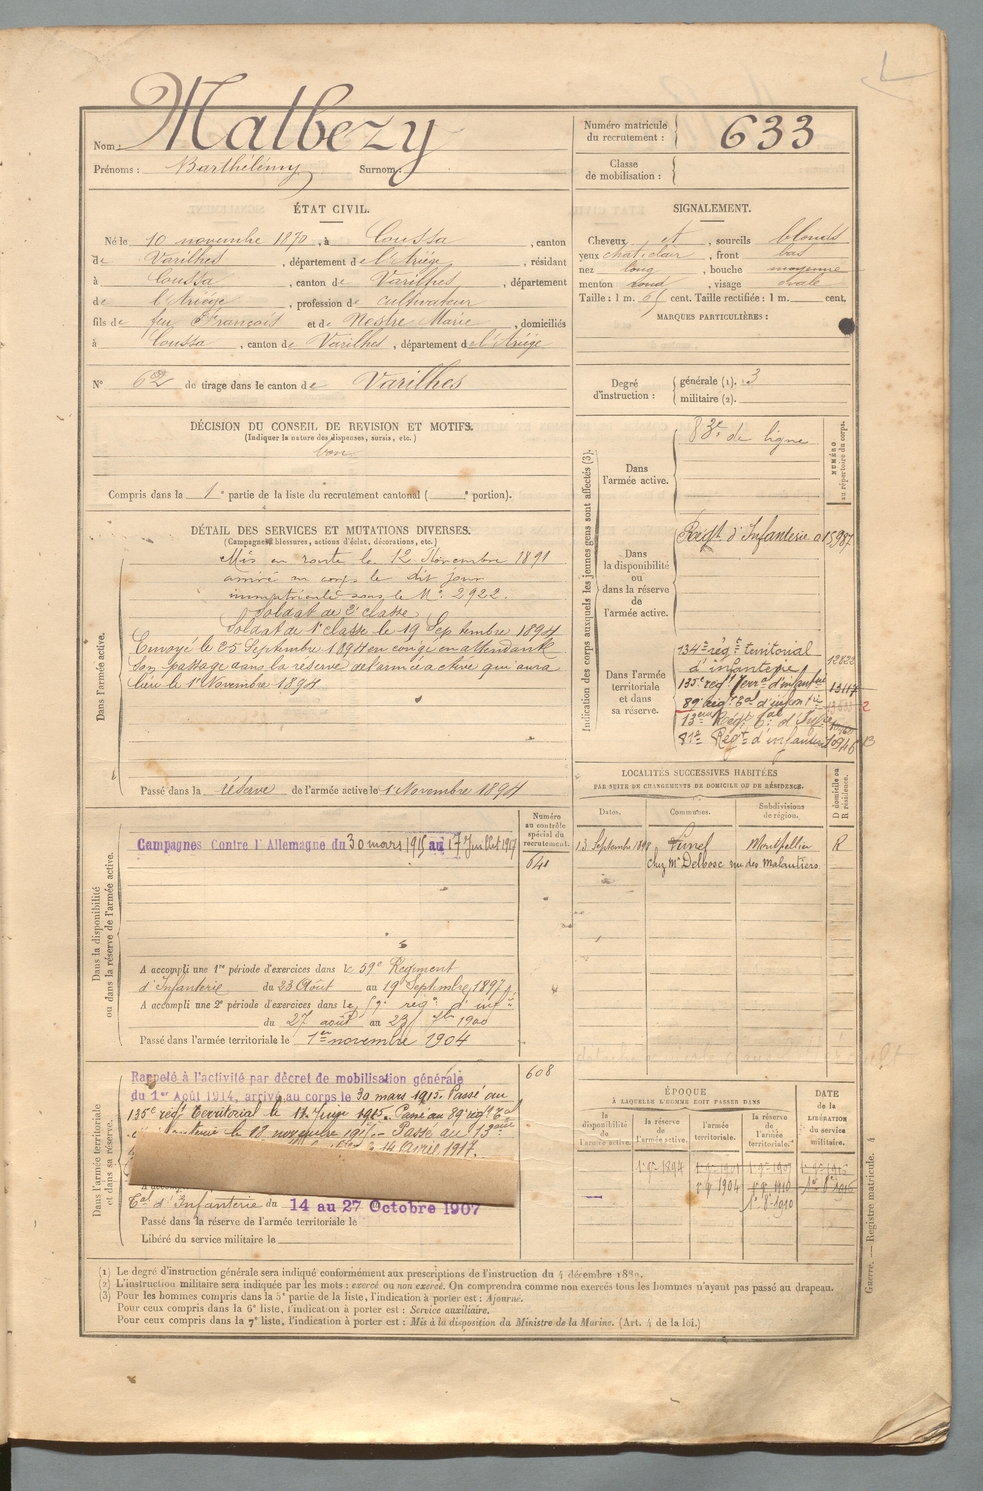 Nom : Malbezy
Prénoms : Barthélémy Surnom :
Numéro matricule du recrutement : 633
Classe de mobilisation :
ÉTAT CIVIL.
Né le 10 novembre 1870, à Coussa, canton
de Varilhes, département de l'Ariège, résidant
à Coussa, canton de Varilhes, département
de l'Ariège, profession de cultivateur
fils de feu François et de Nestre Marie, domiciliés
à Coussa, canton de Varilhes, département de l'Ariège
N° 62 de tirage dans le canton de Varilhes
SIGNALEMENT.
Cheveux et, sourcils blonds
yeux chat. clair, front bas
nez long, bouche moyenne
menton rond, visage ovale
Taille : 1 m. 65 cent. Taille rectifiée : 1 m. cent.
MARQUES PARTICULIÈRES :
Degré d'instruction : générale (1). 3
militaire (2).
DÉCISION DU CONSEIL DE REVISION ET MOTIFS.
(Indiquer la nature des dispenses, sursis, etc.)
bon
Compris dans la 1e partie de la liste du recrutement cantonal ( e portion).
DÉTAIL DES SERVICES ET MUTATIONS DIVERSES.
(Campagnes, blessures, actions d'éclat, décorations, etc.)
Dans l'armée active.
Mis en route le 12 Novembre 1891
arrivé au corps le dit jour
immatriculé sous le N° 2922.
Soldat de 2e classe
Soldat de 1e classe le 19 Septembre 1894
Envoyé le 25 Septembre 1894 en congé en attendant
son passage dans la réserve de l'armée active qui aura
lieu le 1er Novembre 1894
Passé dans la réserve de l'armée active le 1 Novembre 1894
Indication des corps auxquels les jeunes gens sont affectés (3).
NUMÉRO au répertoire du corps.
Dans l'armée active.
83e de ligne
Dans la disponibilité ou dans la réserve de l'armée active.
Régt. d'Infanterie
Dans l'armée territoriale et dans sa réserve.
134e rég. territorial
d'infanterie
135e régt Terral d'infanterie 13117
89e régt Tal d'infanterie
13ème Régt Tal d'Infie
81e Régt d'infanterie
LOCALITÉS SUCCESSIVES HABITÉES
PAR SUITE DE CHANGEMENTS DE DOMICILE OU DE RÉSIDENCE.
Dates. Communes. Subdivisions de région. D domicile ou R résidence.
13 Septembre 1898 Lunel Montpellier R
chez Mr Delbosc rue des Malautiers
Dans la disponibilité ou dans la réserve de l'armée active.
Numéro au contrôle spécial du recrutement.
Campagnes Contre l'Allemagne du 30 mars 1915 au 17 Juillet 1917
641
A accompli une 1re période d'exercices dans le 59e Régiment
d'Infanterie du 23 Août au 19 Septembre 1897
A accompli une 2e période d'exercices dans le 59e régt d'infie
du 27 août au 23 7bre 1900
Passé dans l'armée territoriale le 1er novembre 1904
Dans l'armée territoriale et dans sa réserve.
608
Rappelé à l'activité par décret de mobilisation générale
du 1er Août 1914, arrivé au corps le 30 mars 1915. Passé au
135e régt Territorial le 17 Juin 1915. Passé au 89 régt Tal
le 18 novembre 1915. Passé au 13ème
14 Avril 1917.
Tal d'Infanterie du 14 au 27 Octobre 1907
Passé dans la réserve de l'armée territoriale le
Libéré du service militaire le
ÉPOQUE
À LAQUELLE L'HOMME DOIT PASSER DANS
la disponibilité de l'armée active. la réserve de l'armée active. l'armée territoriale. la réserve de l'armée territoriale.
DATE de la LIBÉRATION du service militaire.
1er 9bre 1894
1 9 1904
1er 8 1910
(1) Le degré d'instruction générale sera indiqué conformément aux prescriptions de l'instruction du 4 décembre 1889.
(2) L'instruction militaire sera indiquée par les mots : exercé ou non exercé. On comprendra comme non exercés tous les hommes n'ayant pas passé au drapeau.
(3) Pour les hommes compris dans la 5e partie de la liste, l'indication à porter est : Ajourné.
Pour ceux compris dans la 6e liste, l'indication à porter est : Service auxiliaire.
Pour ceux compris dans la 7e liste, l'indication à porter est : Mis à la disposition du Ministre de la Marine. (Art. 4 de la loi.)
Guerre. — Registre matricule. 4